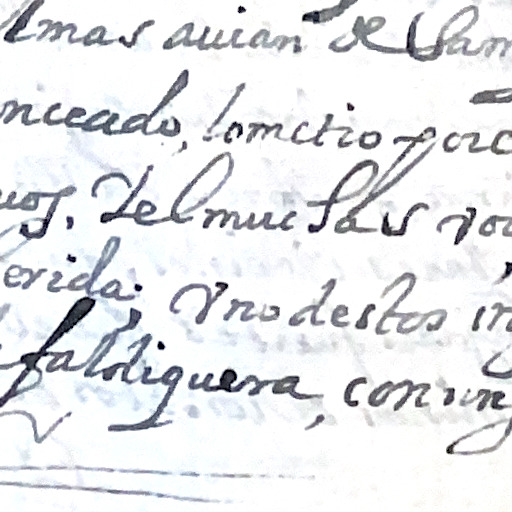 Almas auian de Sam
onceado, lo metio por c
uos. Y el muchas vo
herida; Vno destos in
faldiguera, con un